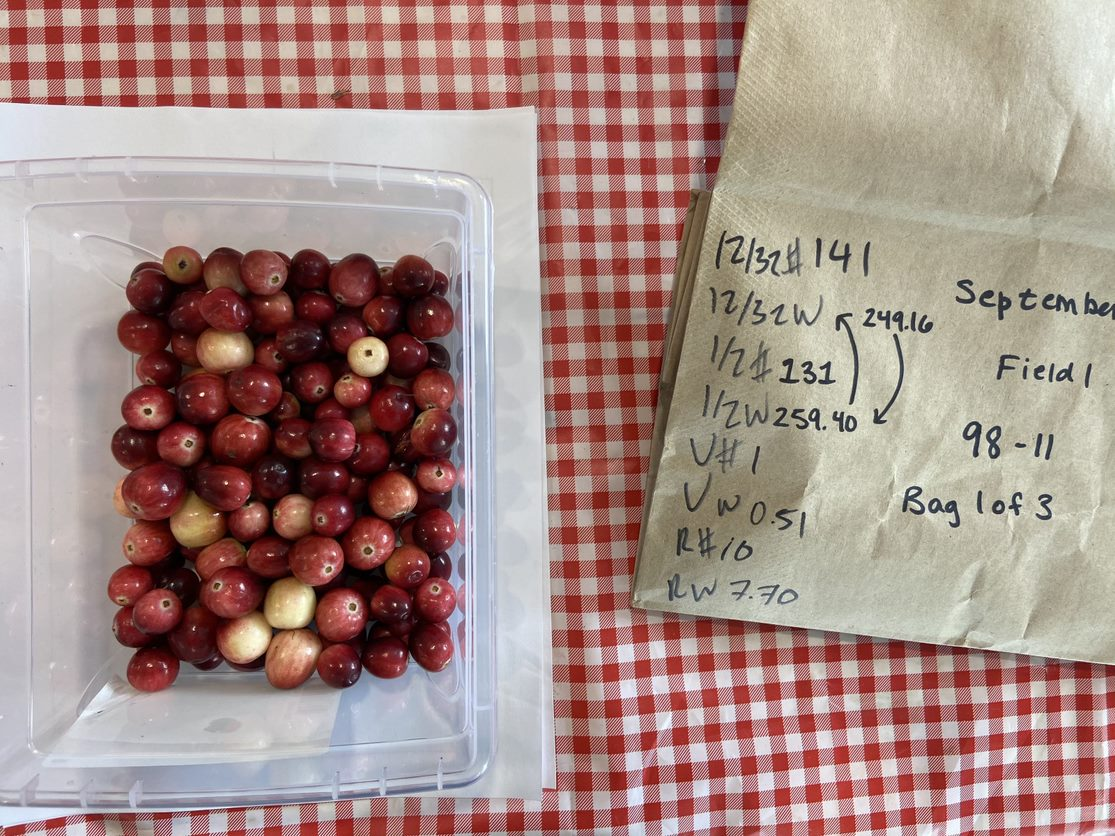 12/32# 141
12/32W 249.16
1/2# 131
1/2W 259.40
V# 1
VW 0.51
R# 10
RW 7.70
September
Field 1
98-11
Bag 1 of 3